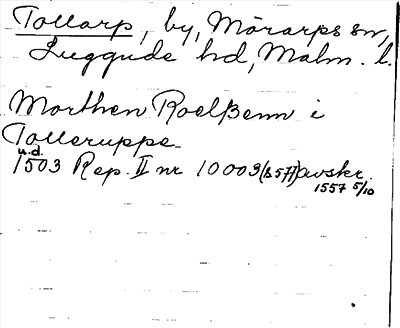 Tollarp, by, Mörarps sn,
Luggude hd, Malm. l.
Morthen Roelßenn i
Tolleruppe
u.d.
1503 Rep. II nr 10003 (B 577) avskr.
1557 5/10